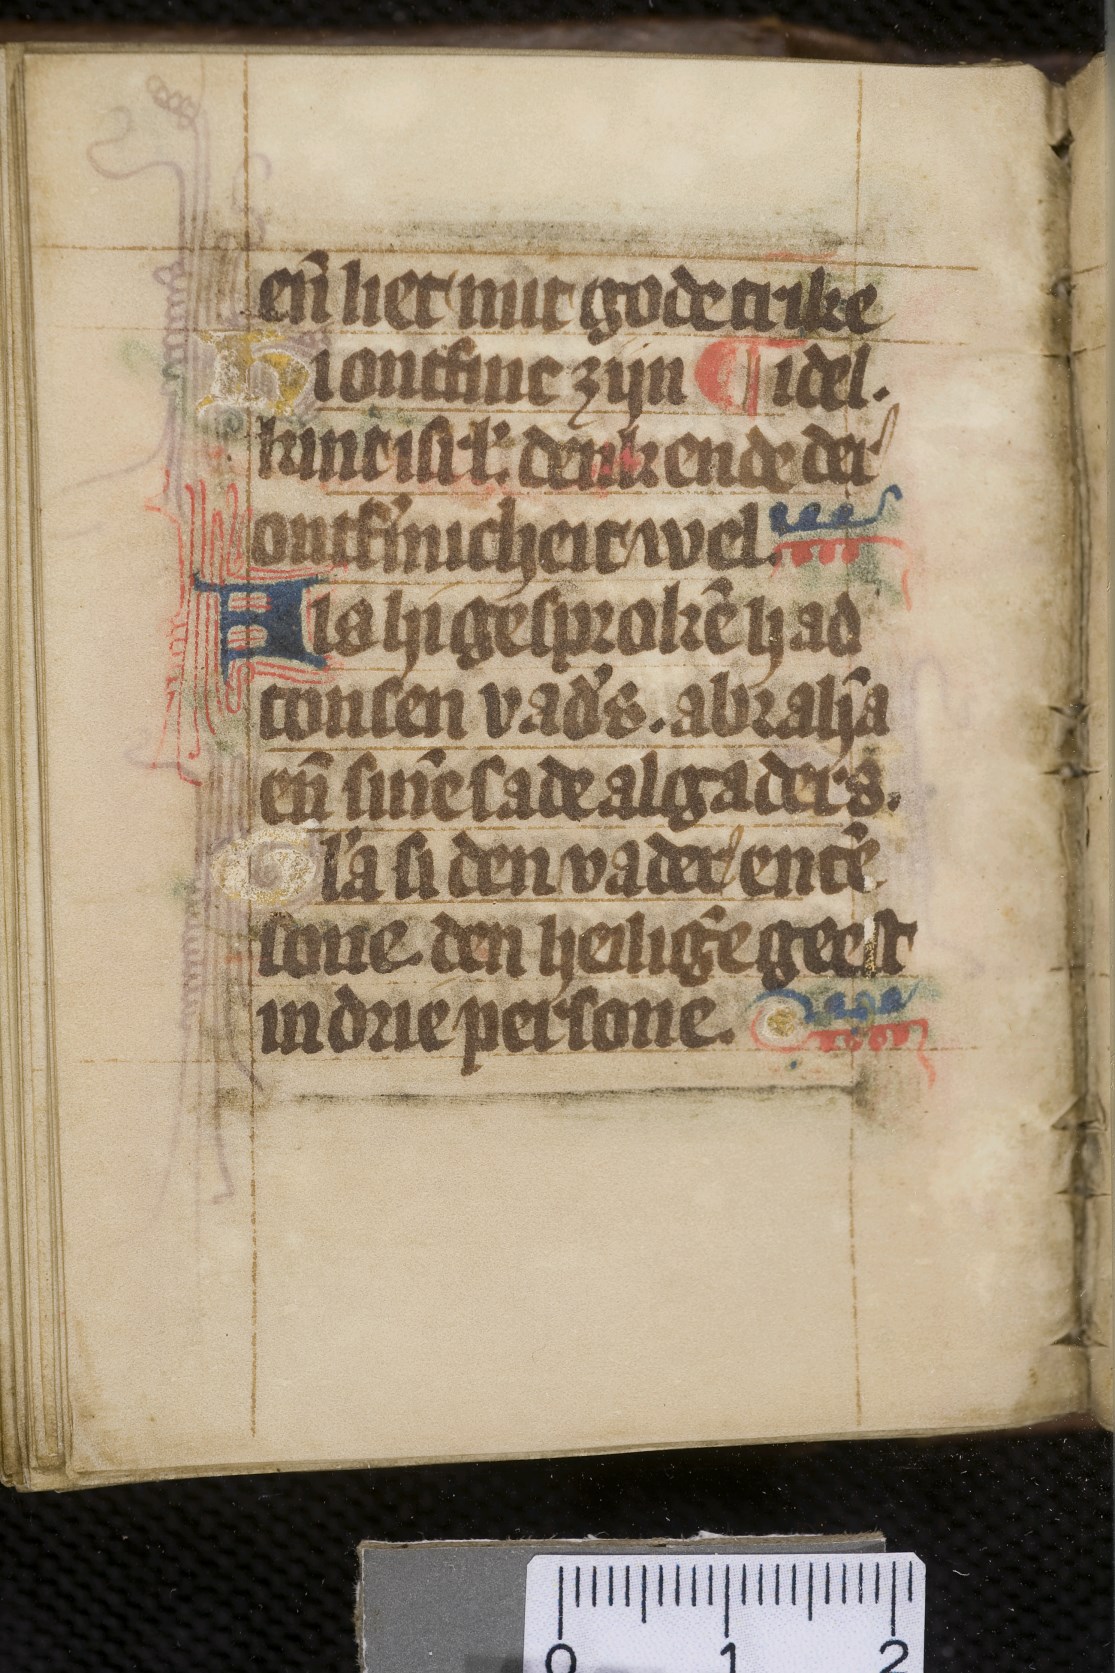 en̄ liet mit gode trike
Hi ontfinc zijn ¶ idel.
kint isrł. denkende der
ontf'micheit wel.
Als hi gesprokē had
tonsen vad's. abrahā
en̄ sinē sade algaders.
Gl'a si den vader entē
sone den heiligē geest
in drie persone.
0 1 2